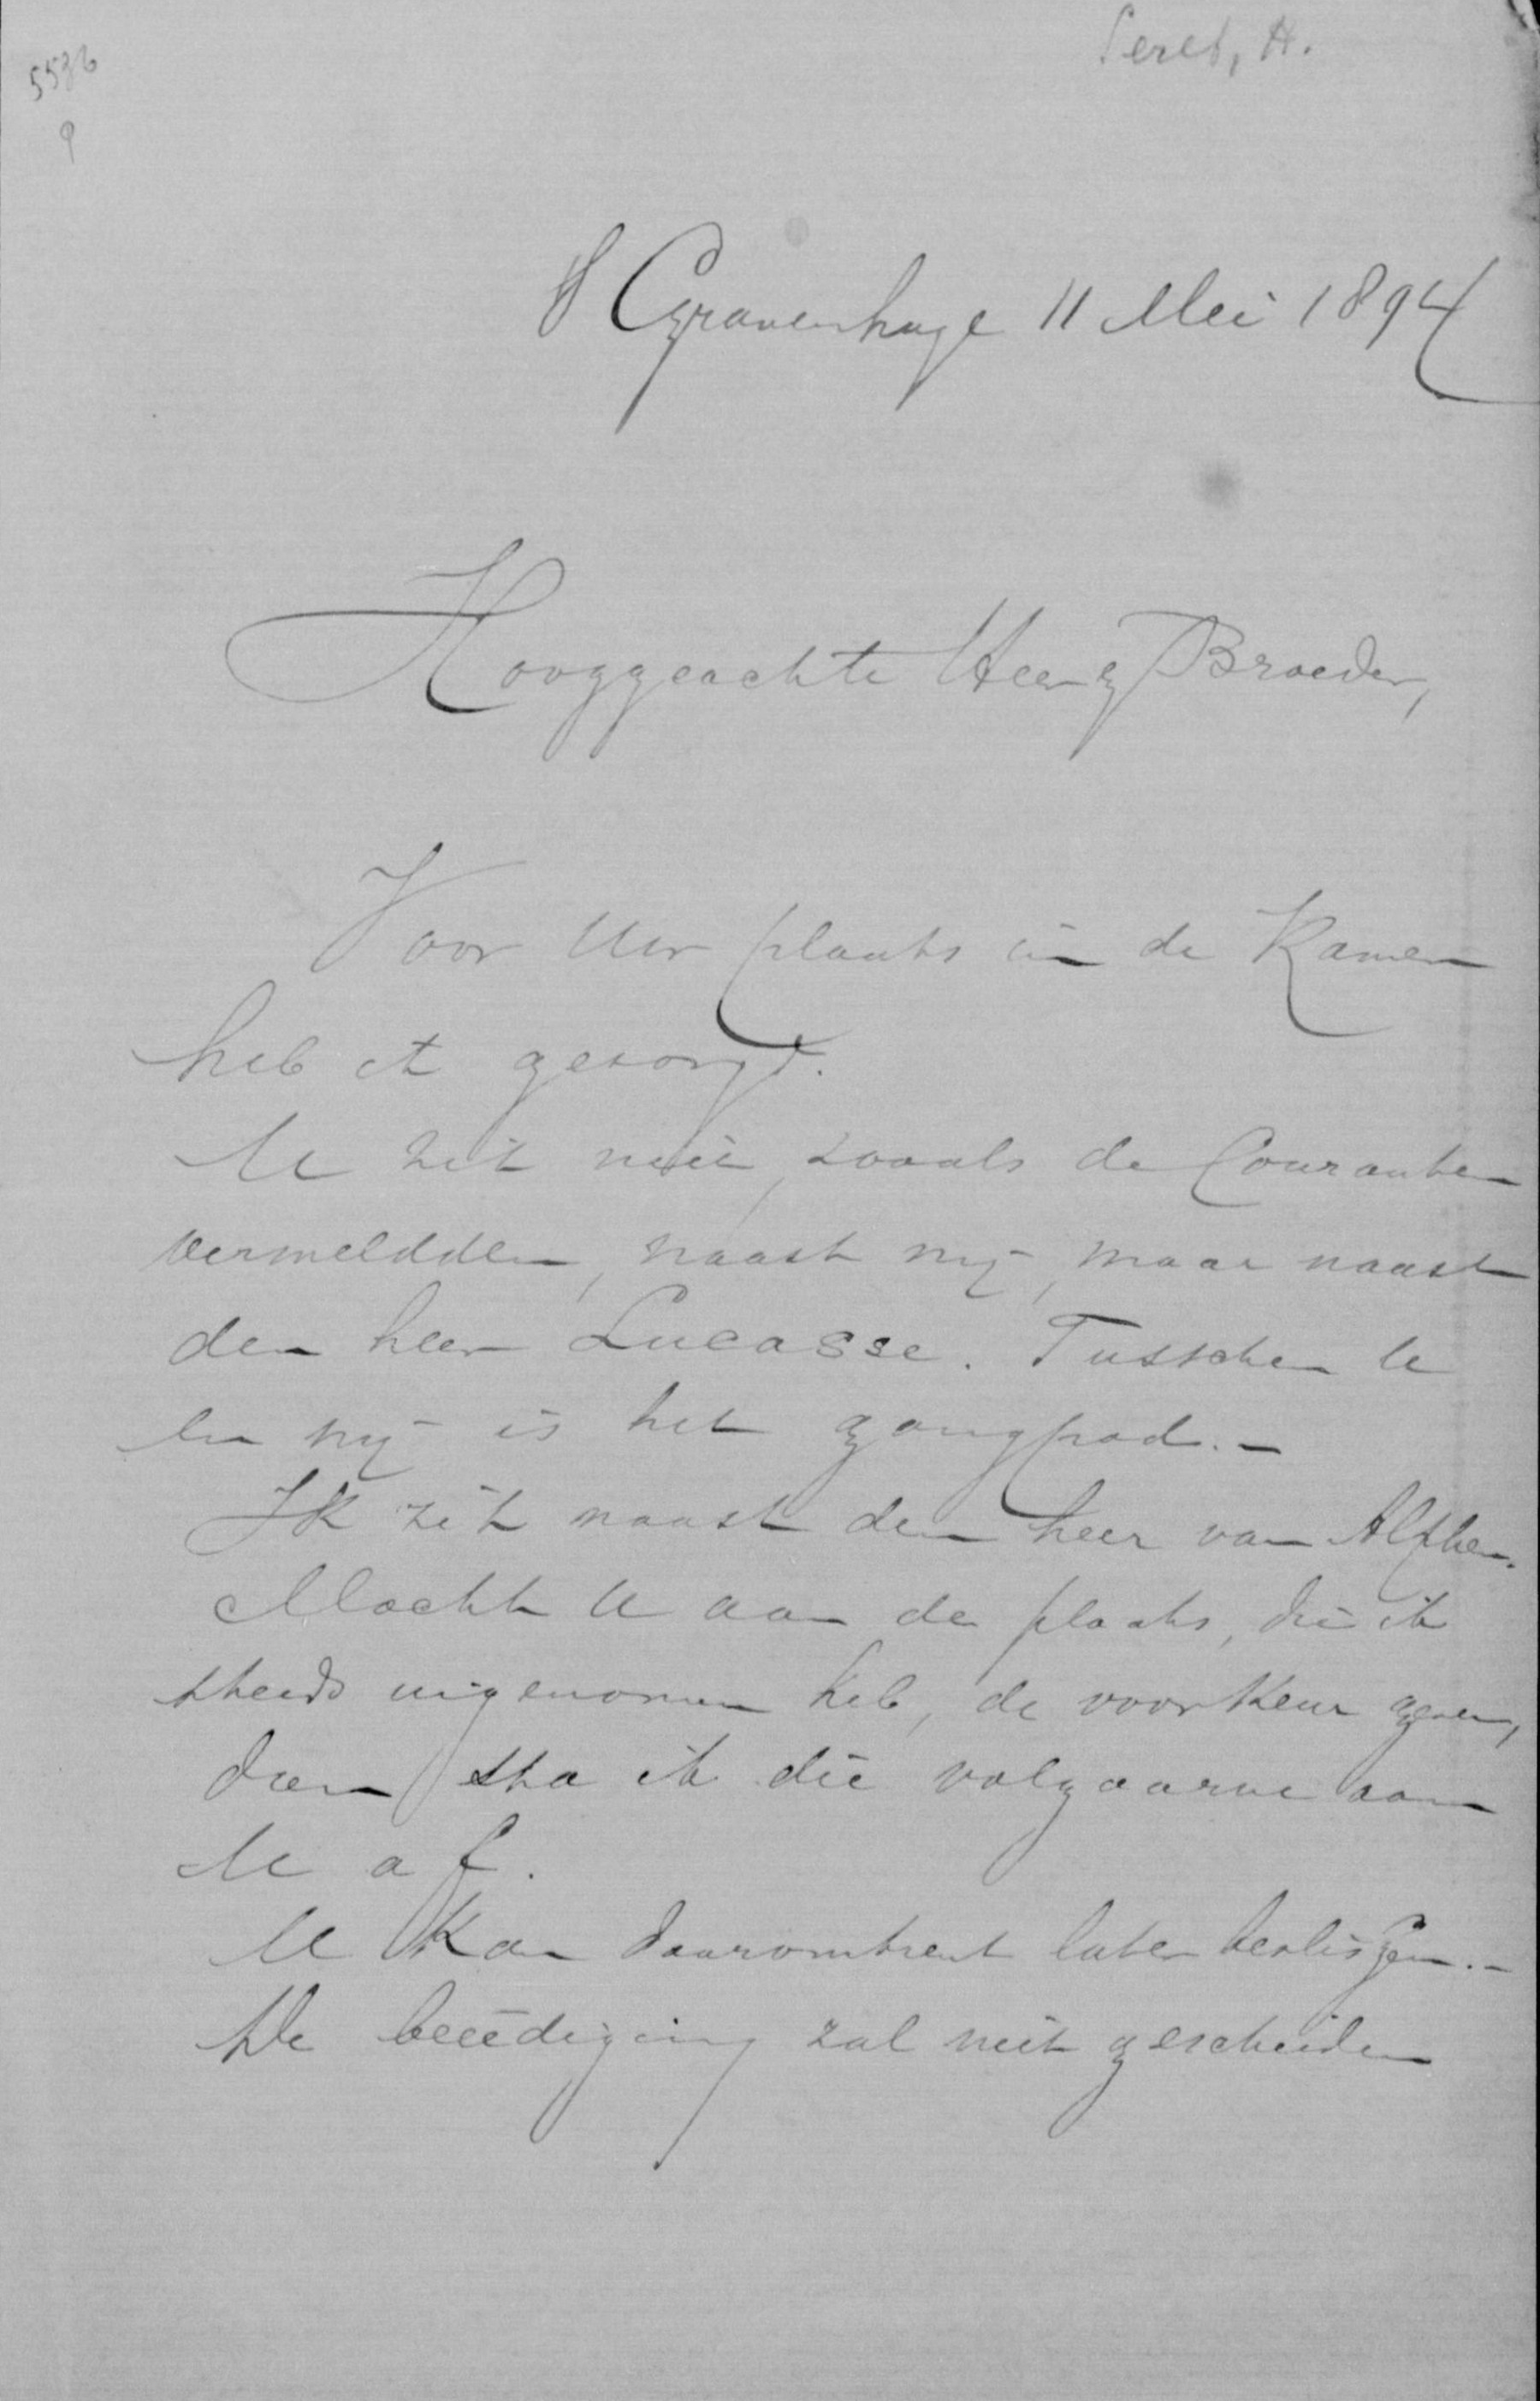 5586
9
Seret, H.
s Gravenhage 11 Mei 1894
Hooggeachte Heer & Broeder,
Voor Uw plaats in de Kamer
heb ik gezorgd.
U zit niet, zooals de Couranten
vermeldden, naast mij, maar naast
den heer Lucasse. Tusschen U
en mij is het gangpad. –
Ik zit naast den heer van Alphen.
Mocht U aan de plaats, die ik
steeds ingenomen heb, de voorkeur geven,
dan sta ik die volgaarne aan
U af.
U kan daaromtrent later beslissen. –
De beëediging zal niet geschieden